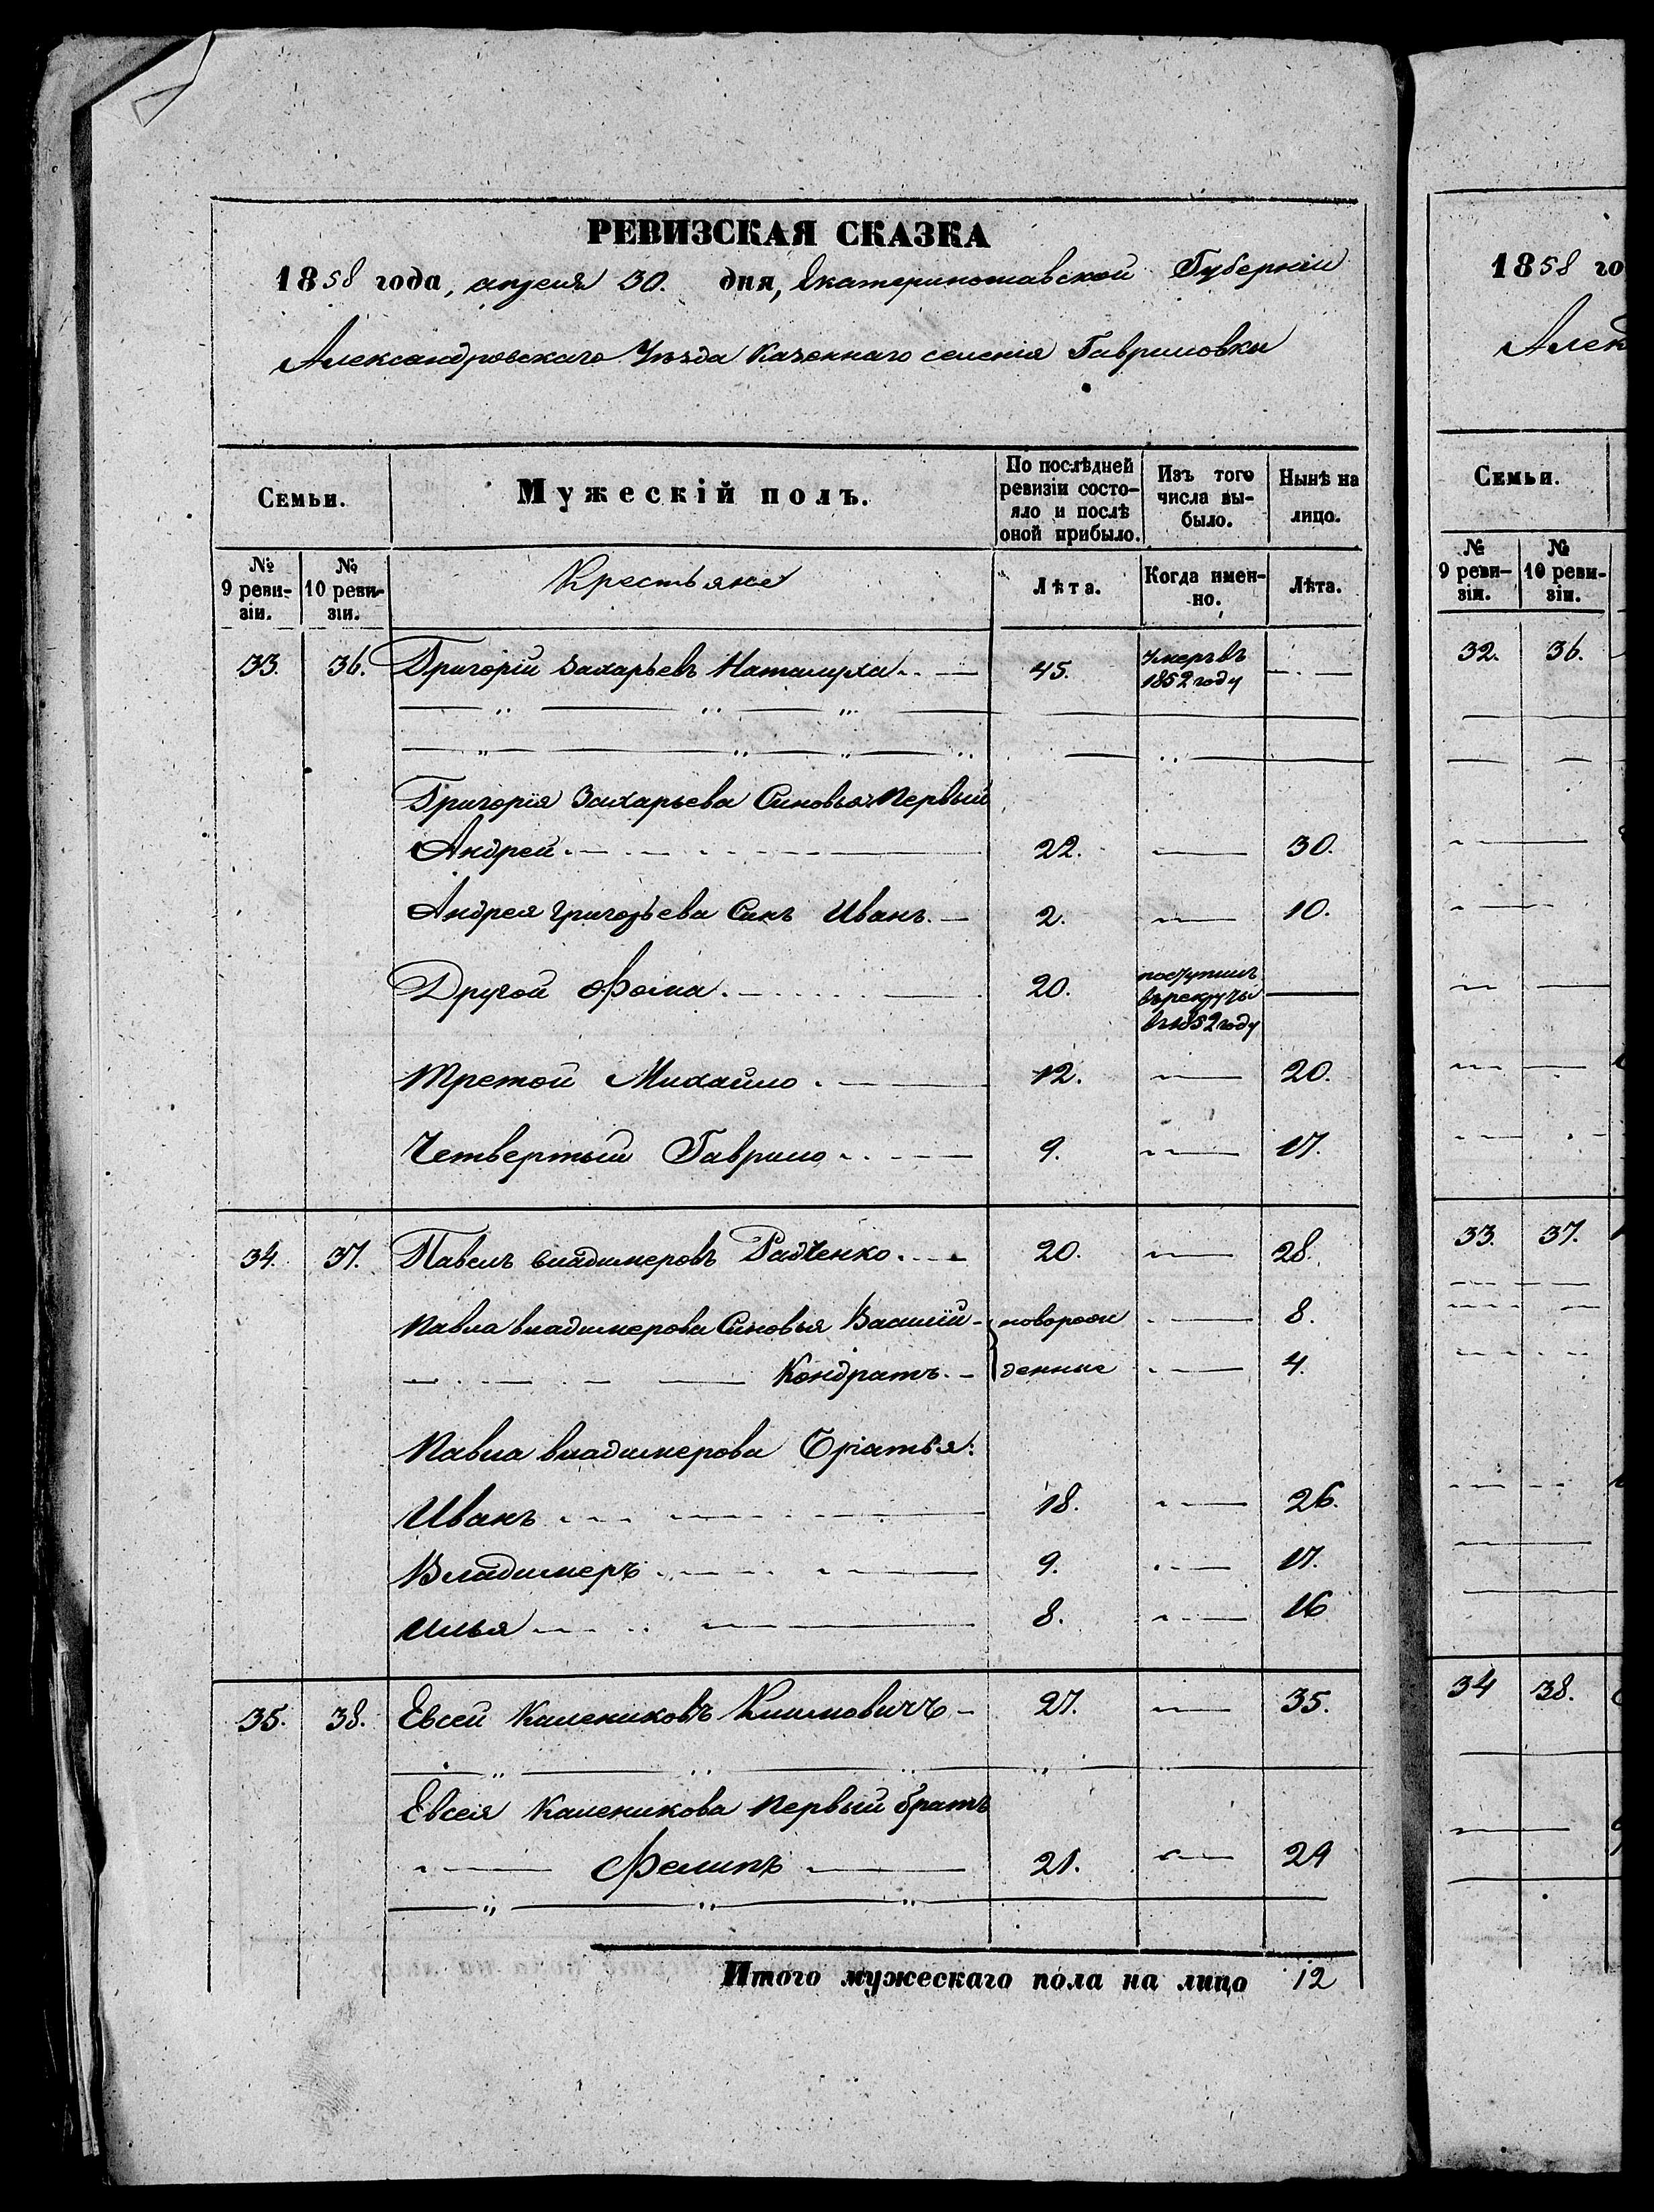 РЕВИЗСКАЯ СКАЗКА
1858 года, апреля 30. дня, Екатеринославской Губерніи
Александровскаго Уѣзда Казеннаго селенія Гавриловки
Семьи. Мужескій полъ. По послѣдней ревизіи состояло и послѣ оной прибыло. Изъ того числа выбыло. Нынѣ на лицо.
№ 9 ревизіи. № 10 ревизіи. Крестьяне Лѣта. Когда именно. Лѣта.
33. 36. Григорій Захарьевъ Наталуха 45. умеръ въ 1852 году
Григорія Захарьева Сыновья Первый
Андрей 22. 30.
Андрея Григорьева Сынъ Иванъ 2. 10.
Другой Фома 20. поступилъ въ рекруты въ 1852 году
Третой Михайло 12. 20.
Четвертый Гаврило 9. 17.
34. 37. Павелъ владимеровъ Радченко 20. 28.
Павла владимерова Сыновья Василій новорож 8.
Кондратъ денные 4.
Павла владимерова братья:
Иванъ 18. 26.
Владимеръ 9. 17.
Илья 8. 16
35. 38. Евсей Калениковъ Климовичъ 27. 35.
Евсея Каленикова Первый братъ
Филипъ 21. 29
Итого мужескаго пола на лицо 12
1858 го
Алек
Семьи.
№ 9 ревизіи. № 10 ревизіи.
32. 36.
33. 37.
34 38.